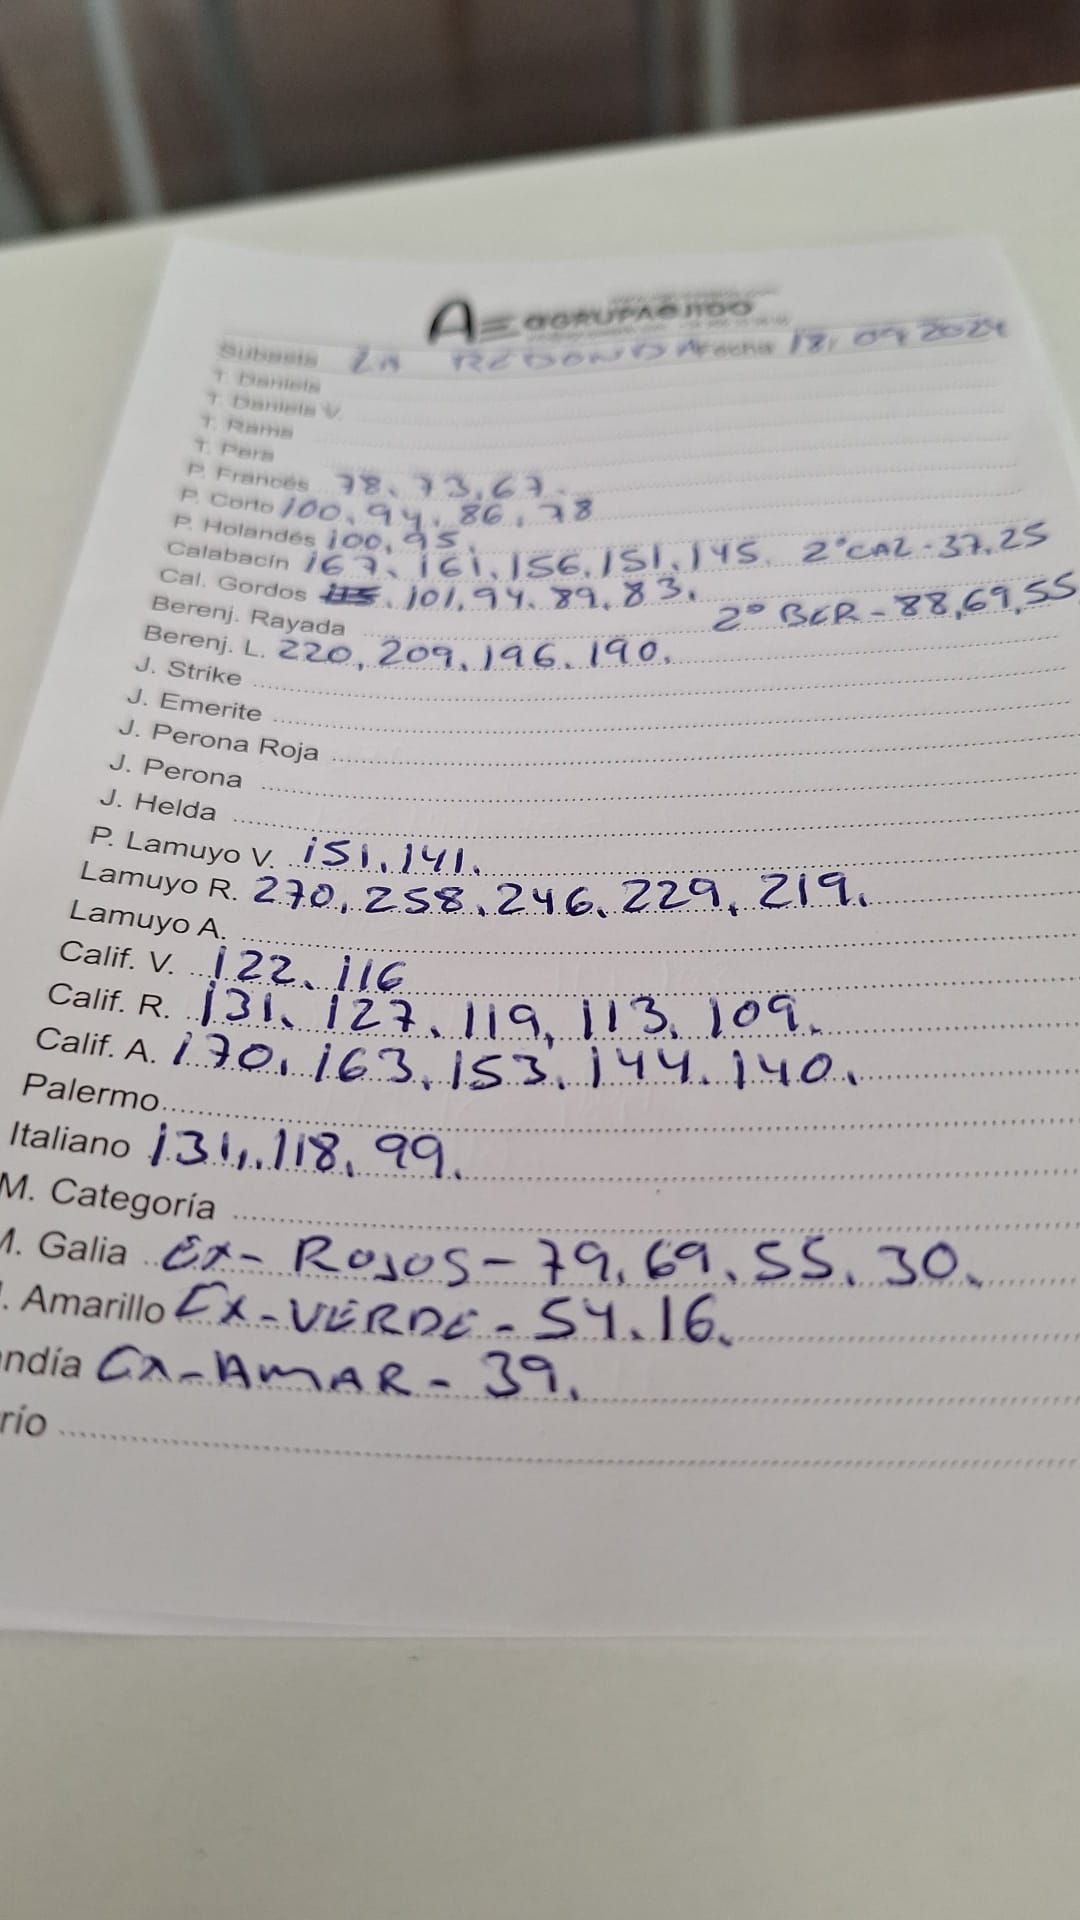 A= AGRUPAEJIDO
Subasta LA REDONDA Fecha 18, 09 2024
T. Daniela
T. Daniela V.
T. Rama
T. Pera
P. Francés 78, 73, 67.
P. Corto 100, 94, 86, 78
P. Holandés 100, 95.
Calabacín 167, 161, 156, 151, 145. 2°CAL - 37, 25
Cal. Gordos 101, 94, 89, 83.
Berenj. Rayada 2° BER - 88, 69, 55
Berenj. L. 220, 209, 196, 190.
J. Strike
J. Emerite
J. Perona Roja
J. Perona
J. Helda
P. Lamuyo V. 151, 141.
Lamuyo R. 270, 258, 246, 229, 219.
Lamuyo A.
Calif. V. 122, 116
Calif. R. 131, 127, 119, 113, 109.
Calif. A. 170, 163, 153, 144, 140.
Palermo
Italiano 131, 118, 99.
M. Categoría
M. Galia EX - ROJOS - 79, 69, 55, 30.
. Amarillo EX - VERDE - 54, 16.
ndía EX - AMAR - 39.
río